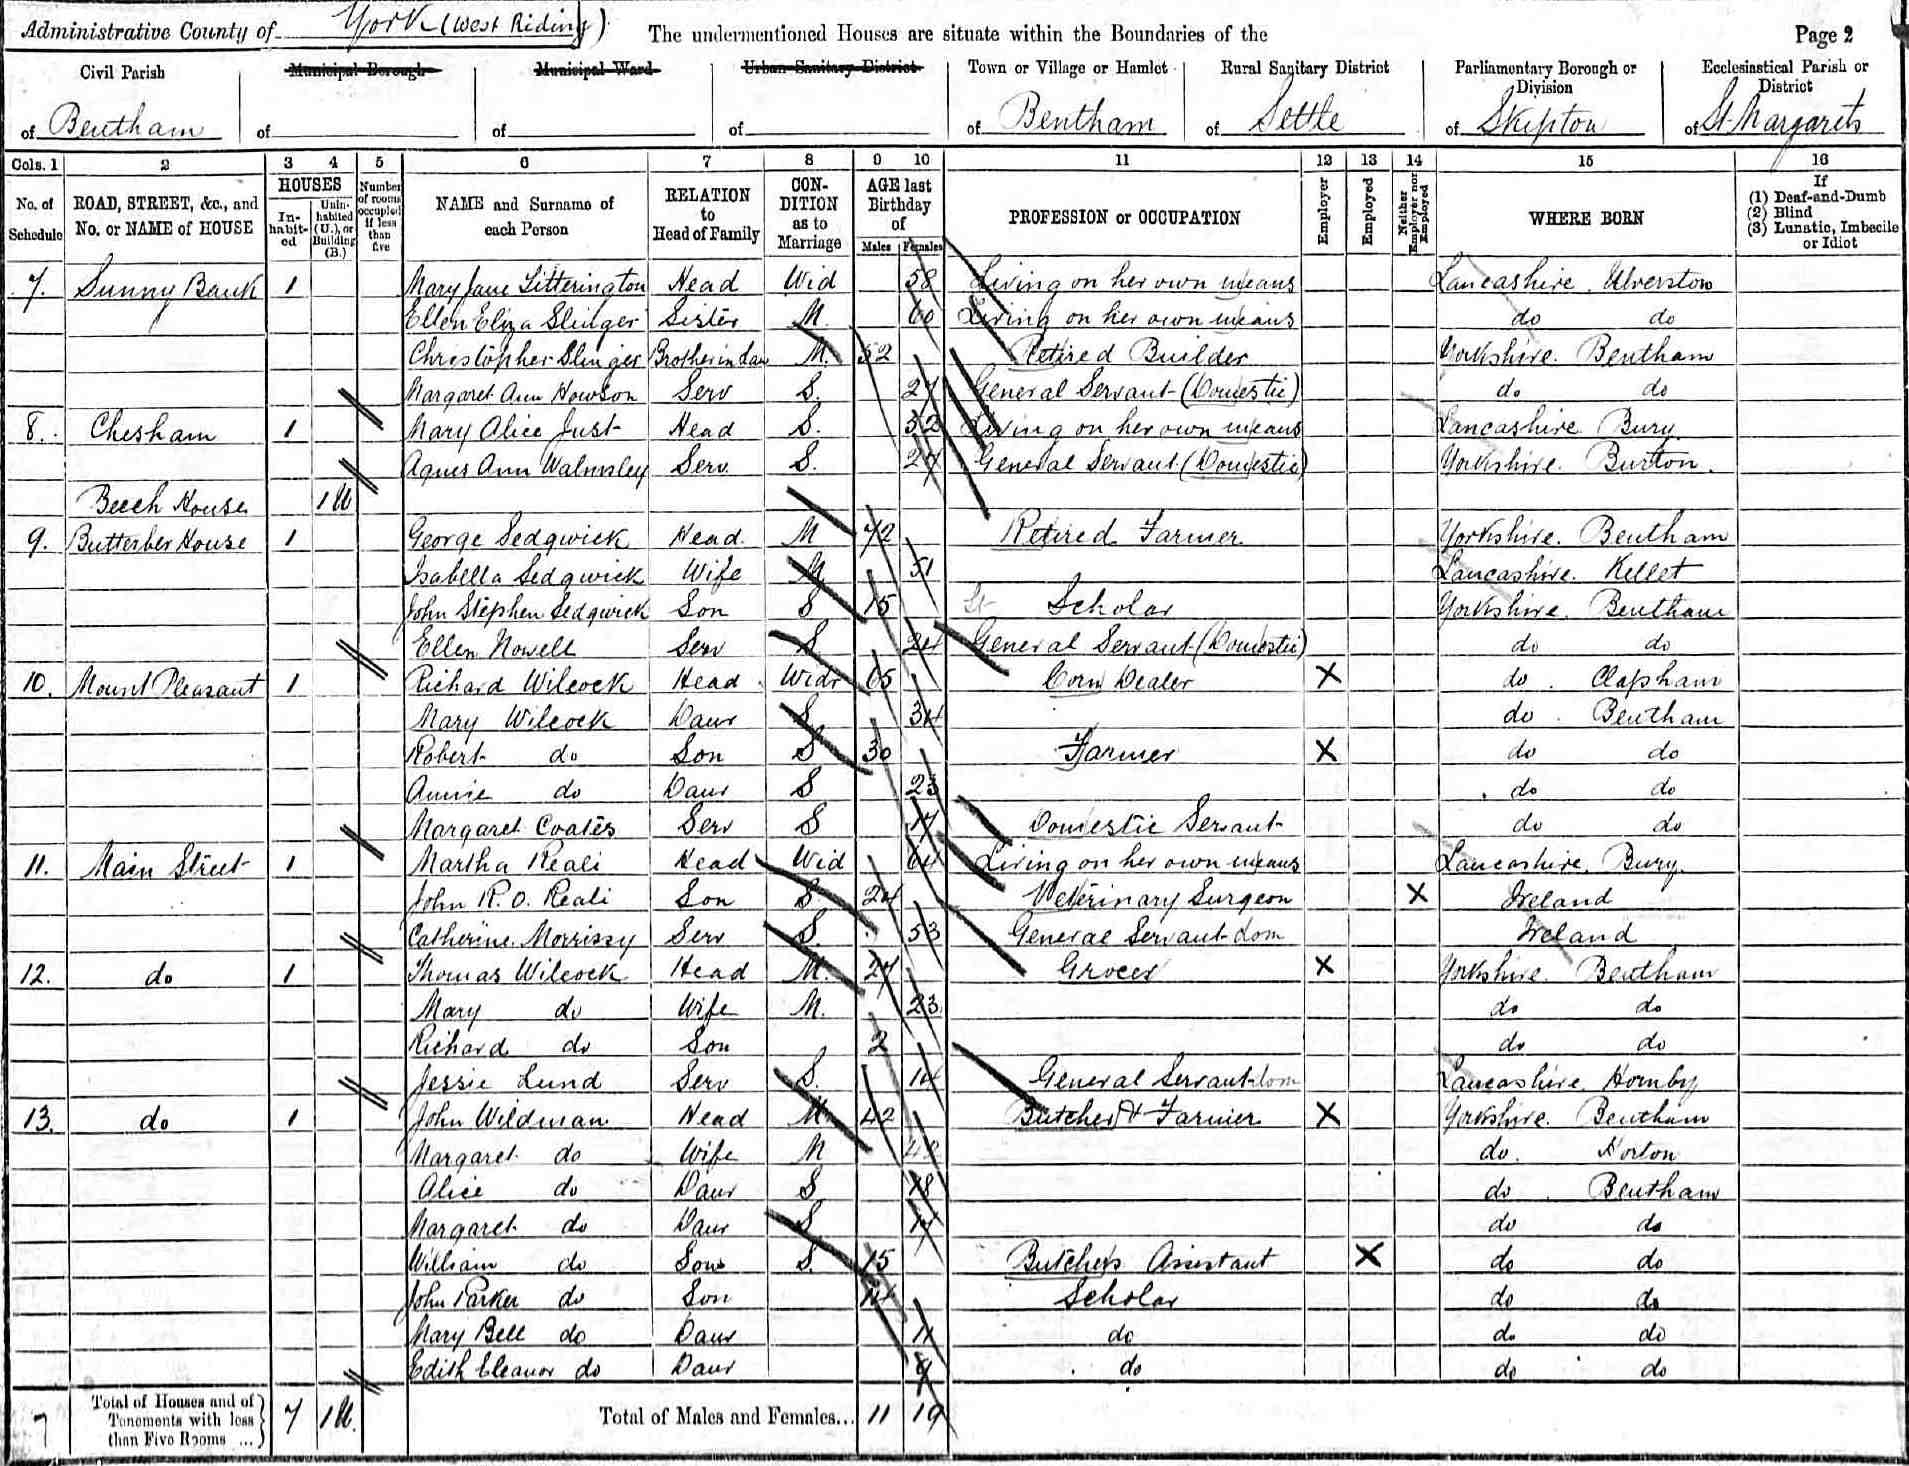 Administrative County of York (West Riding) The undermentioned Houses are situate within the Boundaries of the Page 2
Civil Parish Municipal Borough Municipal Ward Urban Sanitary District Town or Village or Hamlet Rural Sanitary District Parliamentary Borough or Division Ecclesiastical Parish or District
of Bentham of of of of Bentham of Settle of Skipton of St. Margarets
Cols. 1 2 3 4 5 6 7 8 9 10 11 12 13 14 15 16
No. of Schedule ROAD, STREET, &c., and No. or NAME of HOUSE HOUSES In-habit-ed Unin-habited (U.), or Building (B.) Number of rooms occupied if less than five NAME and Surname of each Person RELATION to Head of Family CON-DITION as to Marriage AGE last Birthday of Males Females PROFESSION or OCCUPATION Employer Employed Neither Employer nor Employed WHERE BORN If (1) Deaf-and-Dumb (2) Blind (3) Lunatic, Imbecile or Idiot
7. Sunny Bank 1 Mary Jane Titterington Head Wid 58 Living on her own means Lancashire. Ulverston
Ellen Eliza Slinger Sister M. 60 Living on her own means do do
Christopher Slinger Brother in Law M. 52 Retired Builder Yorkshire. Bentham
Margaret Ann Howson Serv S. 27 General Servant (Domestic) do do
8. Chesham 1 Mary Alice Just Head S. 52 Living on her own means Lancashire Bury
Agnes Ann Walmsley Serv. S. 27 General Servant (Domestic) Yorkshire. Burton.
Beech House 1 U
9. Butterber House 1 George Sedgwick Head. M 72 Retired Farmer Yorkshire. Bentham
Isabella Sedgwick Wife M 51 Lancashire. Kellet
John Stephen Sedgwick Son S 15 St Scholar Yorkshire. Bentham
Ellen Nowell Serv S 24 General Servant (Domestic) do do
10. Mount Pleasant 1 Richard Wilcock Head. Widr 65 Corn Dealer X do. Clapham
Mary Wilcock Daur S 34 do. Bentham
Robert do Son S 30 Farmer X do do
Annie do Daur S 23 do do
Margaret Coates Serv S 17 Domestic Servant do do
11. Main Street 1 Martha Reali Head Wid 64 Living on her own means Lancashire. Bury.
John R. O. Reali Son S. 24 Veterinary Surgeon X Ireland
Catherine Morrissy Serv S. 53 General Servant dom Ireland
12. do 1 Thomas Wilcock Head M. 27 Grocer X Yorkshire. Bentham
Mary do Wife M. 23 do do
Richard do Son 2 do do
Jessie Lund Serv S. 14 General Servant dom Lancashire. Hornby
13. do 1 John Wildman Head M 42 Butcher & Farmer X Yorkshire. Bentham
Margaret do Wife M 42 do. Horton
Alice do Daur S 18 do. Bentham
Margaret do Daur S 17 do do
William do Son S. 15 Butchers Assistant X do do
John Parker do Son 14 Scholar do do
Mary Bell do Daur 11 do do do
Edith Eleanor do Daur 9 do do do
7 Total of Houses and of Tenements with less than Five Rooms ... 7 1U. Total of Males and Females... 11 19